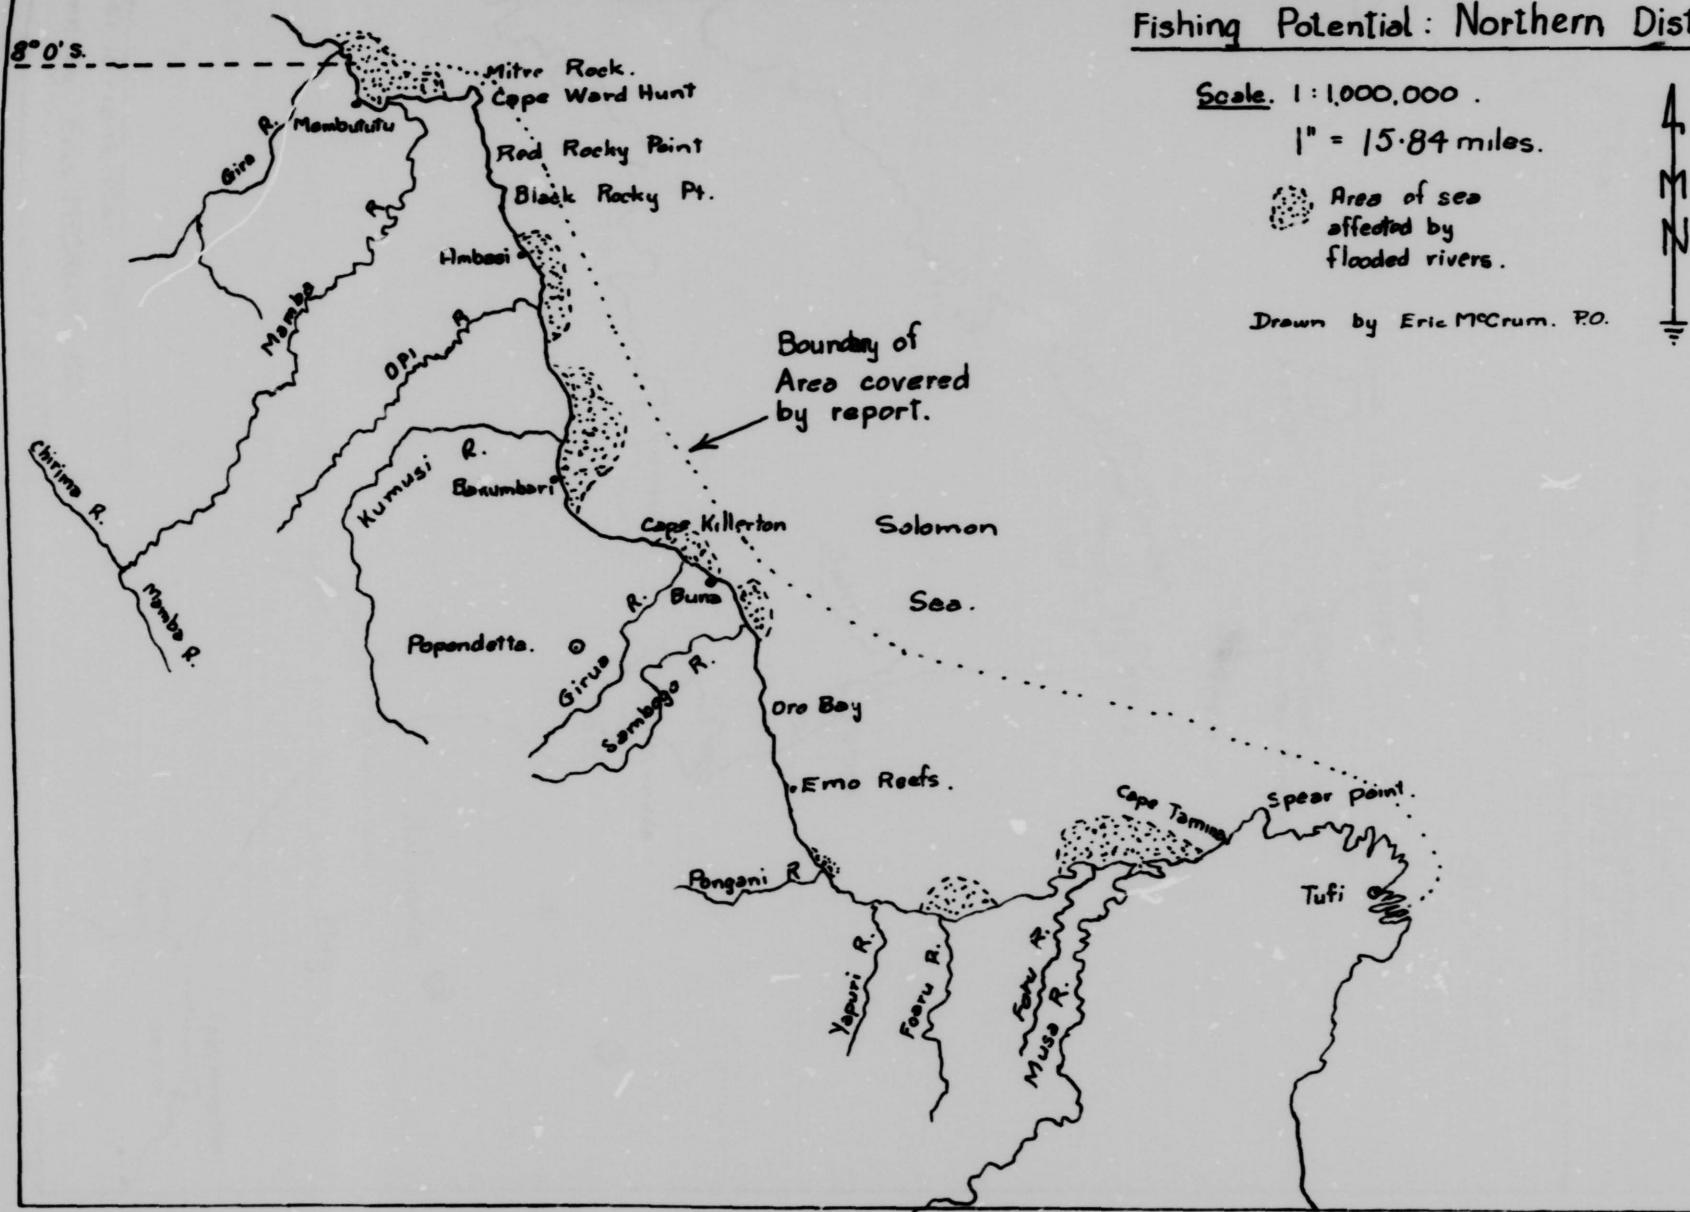 Fishing Potential : Northern Dist
8° 0' S.
Scale. 1 : 1,000,000 .
1" = 15·84 miles.
Area of sea
affected by
flooded rivers.
Drawn by Eric McCrum. P.O.
N
M
Mitre Rock.
Cape Ward Hunt
Mambututu
Gira R.
Red Rocky Point
Black Rocky Pt.
Ambasi
Mamba R
OPI R
Boundary of
Area covered
by report.
Chirima R.
Kumusi R.
Bakumbari
Cape Killerton
Solomon
Sea.
Buna
Mamba R.
Popondetta.
Girua R.
Sambogo R.
Oro Bay
Emo Reefs.
Cape Tamina
Spear Point.
Pongani R
Tufi
Yapuri R.
Foaru R.
Foru R.
Musa R.